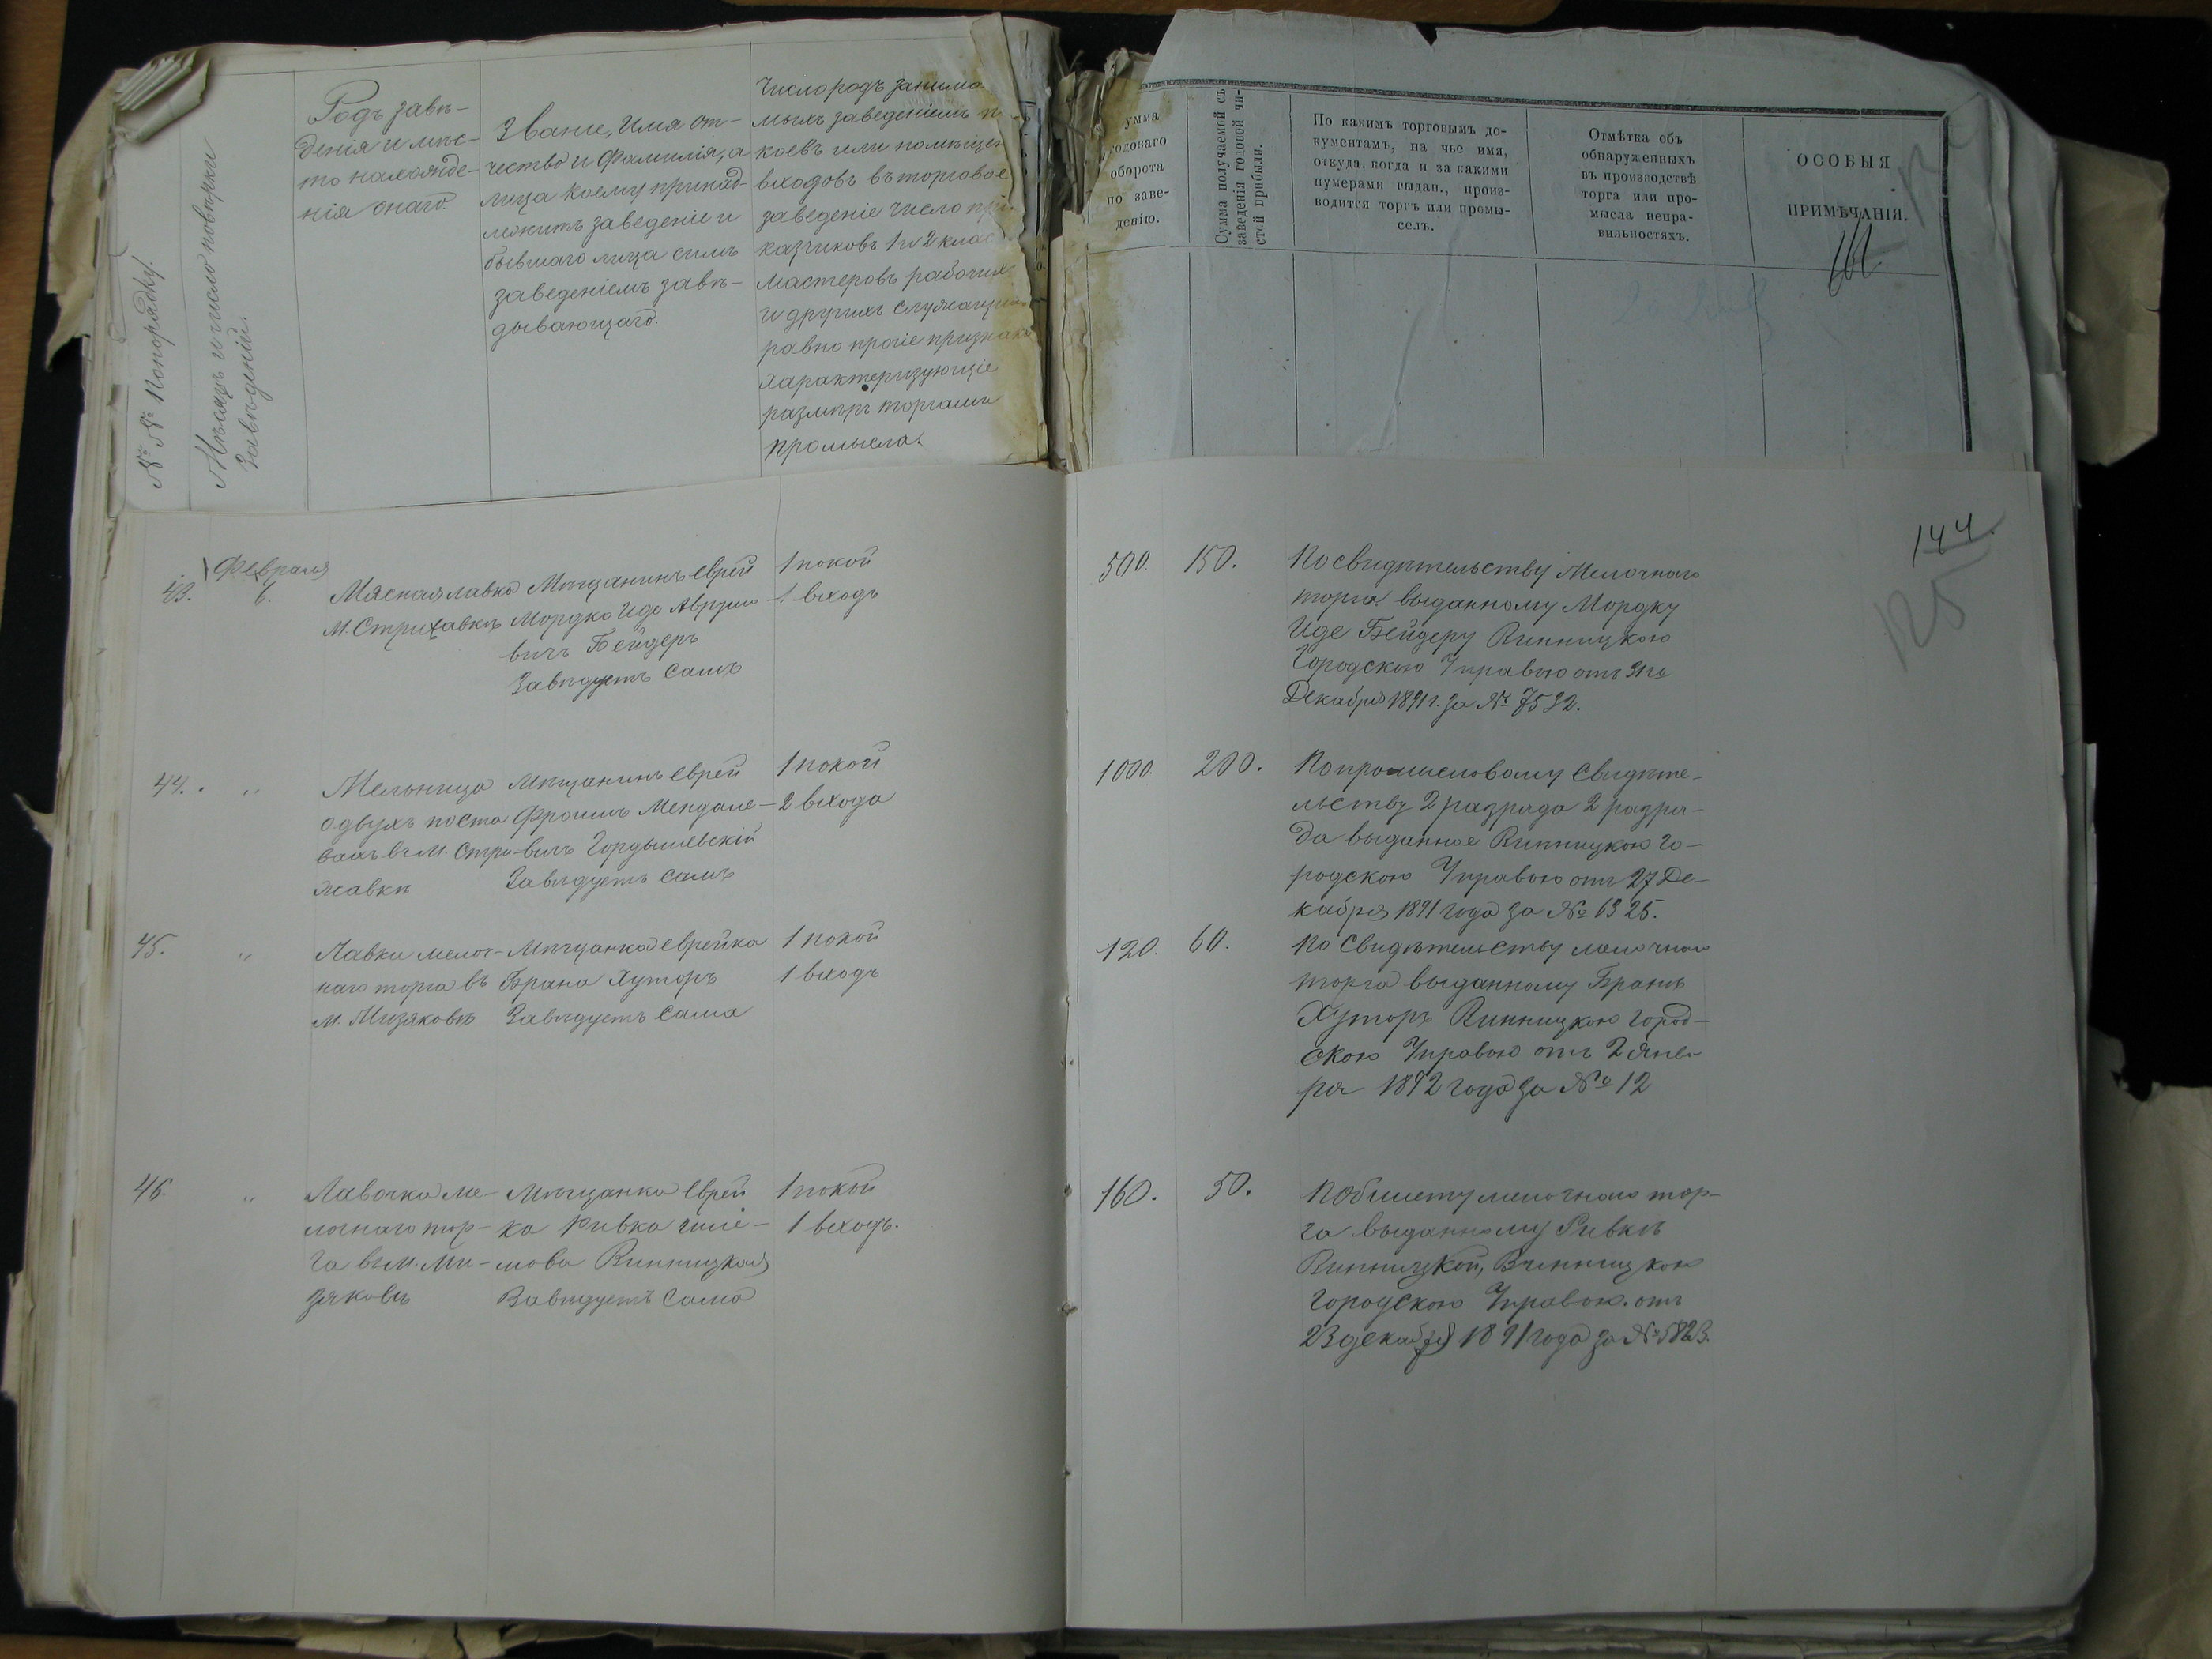 № № Попорядку.
Мѣсяцъ и число повѣрки
Завѣденій.
Родъ завѣ-
денія и мѣс-
то нахожде-
нія онаго.
Званіе, Имя от-
чество и Фамилія, а
лица коему принад-
лежитъ заведеніе и
бывшаго лица симъ
заведеніемъ завѣ-
дывающаго.
Число родъ занима
мыхъ заведеніемъ п
коевъ или помѣщен
входовъ въ торговое
заведеніе число при
казчиковъ 1 и 2 клас
мастеровъ рабочихъ
и другихъ служащихъ
равно прочіе признаки
характеризующіе
размѣръ торга или
промысла.
умма
годоваго
оборота
по заве-
денію.
Сумма получаемой съ
заведенія годовой чи-
стой прибыли.
По какимъ торговымъ до-
кументамъ, на чье имя,
откуда, когда и за какими
нумерами выдан., произ-
водится торгъ или промы-
селъ.
Отмѣтка объ
обнаруженныхъ
въ производствѣ
торга или про-
мысла непра-
вильностяхъ.
ОСОБЫЯ
ПРИМѢЧАНІЯ.
161.
144.
125
43.
Февраля
6.
Мясная лавка
М. Стрижавкѣ
Мѣщанинъ еврей
Мордко Иде Авруmo-
вичъ Бейдеръ
Завѣдуетъ Самъ
1 покой
1 входъ
500. 150.
По свидѣтельству Мелочнаго
торга выданному Мордку
Иде Бейдеру Винницкою
Городскою Управою отъ 31го
Декабря 1891 г. за № 7532.
44. "
Мельница
о двухъ поста
вахъ въ М. Стри-
жавкѣ
Мѣщанинъ еврей
Фроимъ Мендале-
вичъ Гордышевскій
Завѣдуетъ самъ
1 покой
2 входа
1000. 200.
По промысловому Свидѣте-
льству 2 разряда 2 разря-
да выданное Винницкою Го-
родскою Управою отъ 27 Де-
кабря 1891 года за № 6325.
45. "
Лавки мелоч-
наго торга въ
М. Мизяковѣ
Мѣщанка еврейка
Брана Хуторъ
Завѣдуетъ Сама
1 покой
1 входъ
120. 60.
По Свидѣтельству мелочнаго
торга выданному Бранѣ
Хуторъ Винницкою Город-
скою Управою отъ 2 Янва-
ря 1892 года за № 12
46. "
Лавочка ме-
лочнаго тор-
га въ М. Ми-
зяковѣ
Мѣщанка Еврей
ка Ривка
мова Винницкая
Завѣдуетъ Сама
1 покой
1 входъ.
160. 50.
По билету мелочнаго тор-
га выданному Ривкѣ
Винницкой, Винницкою
городскою Управою. отъ
23 декабря 1891 года за № 5823.